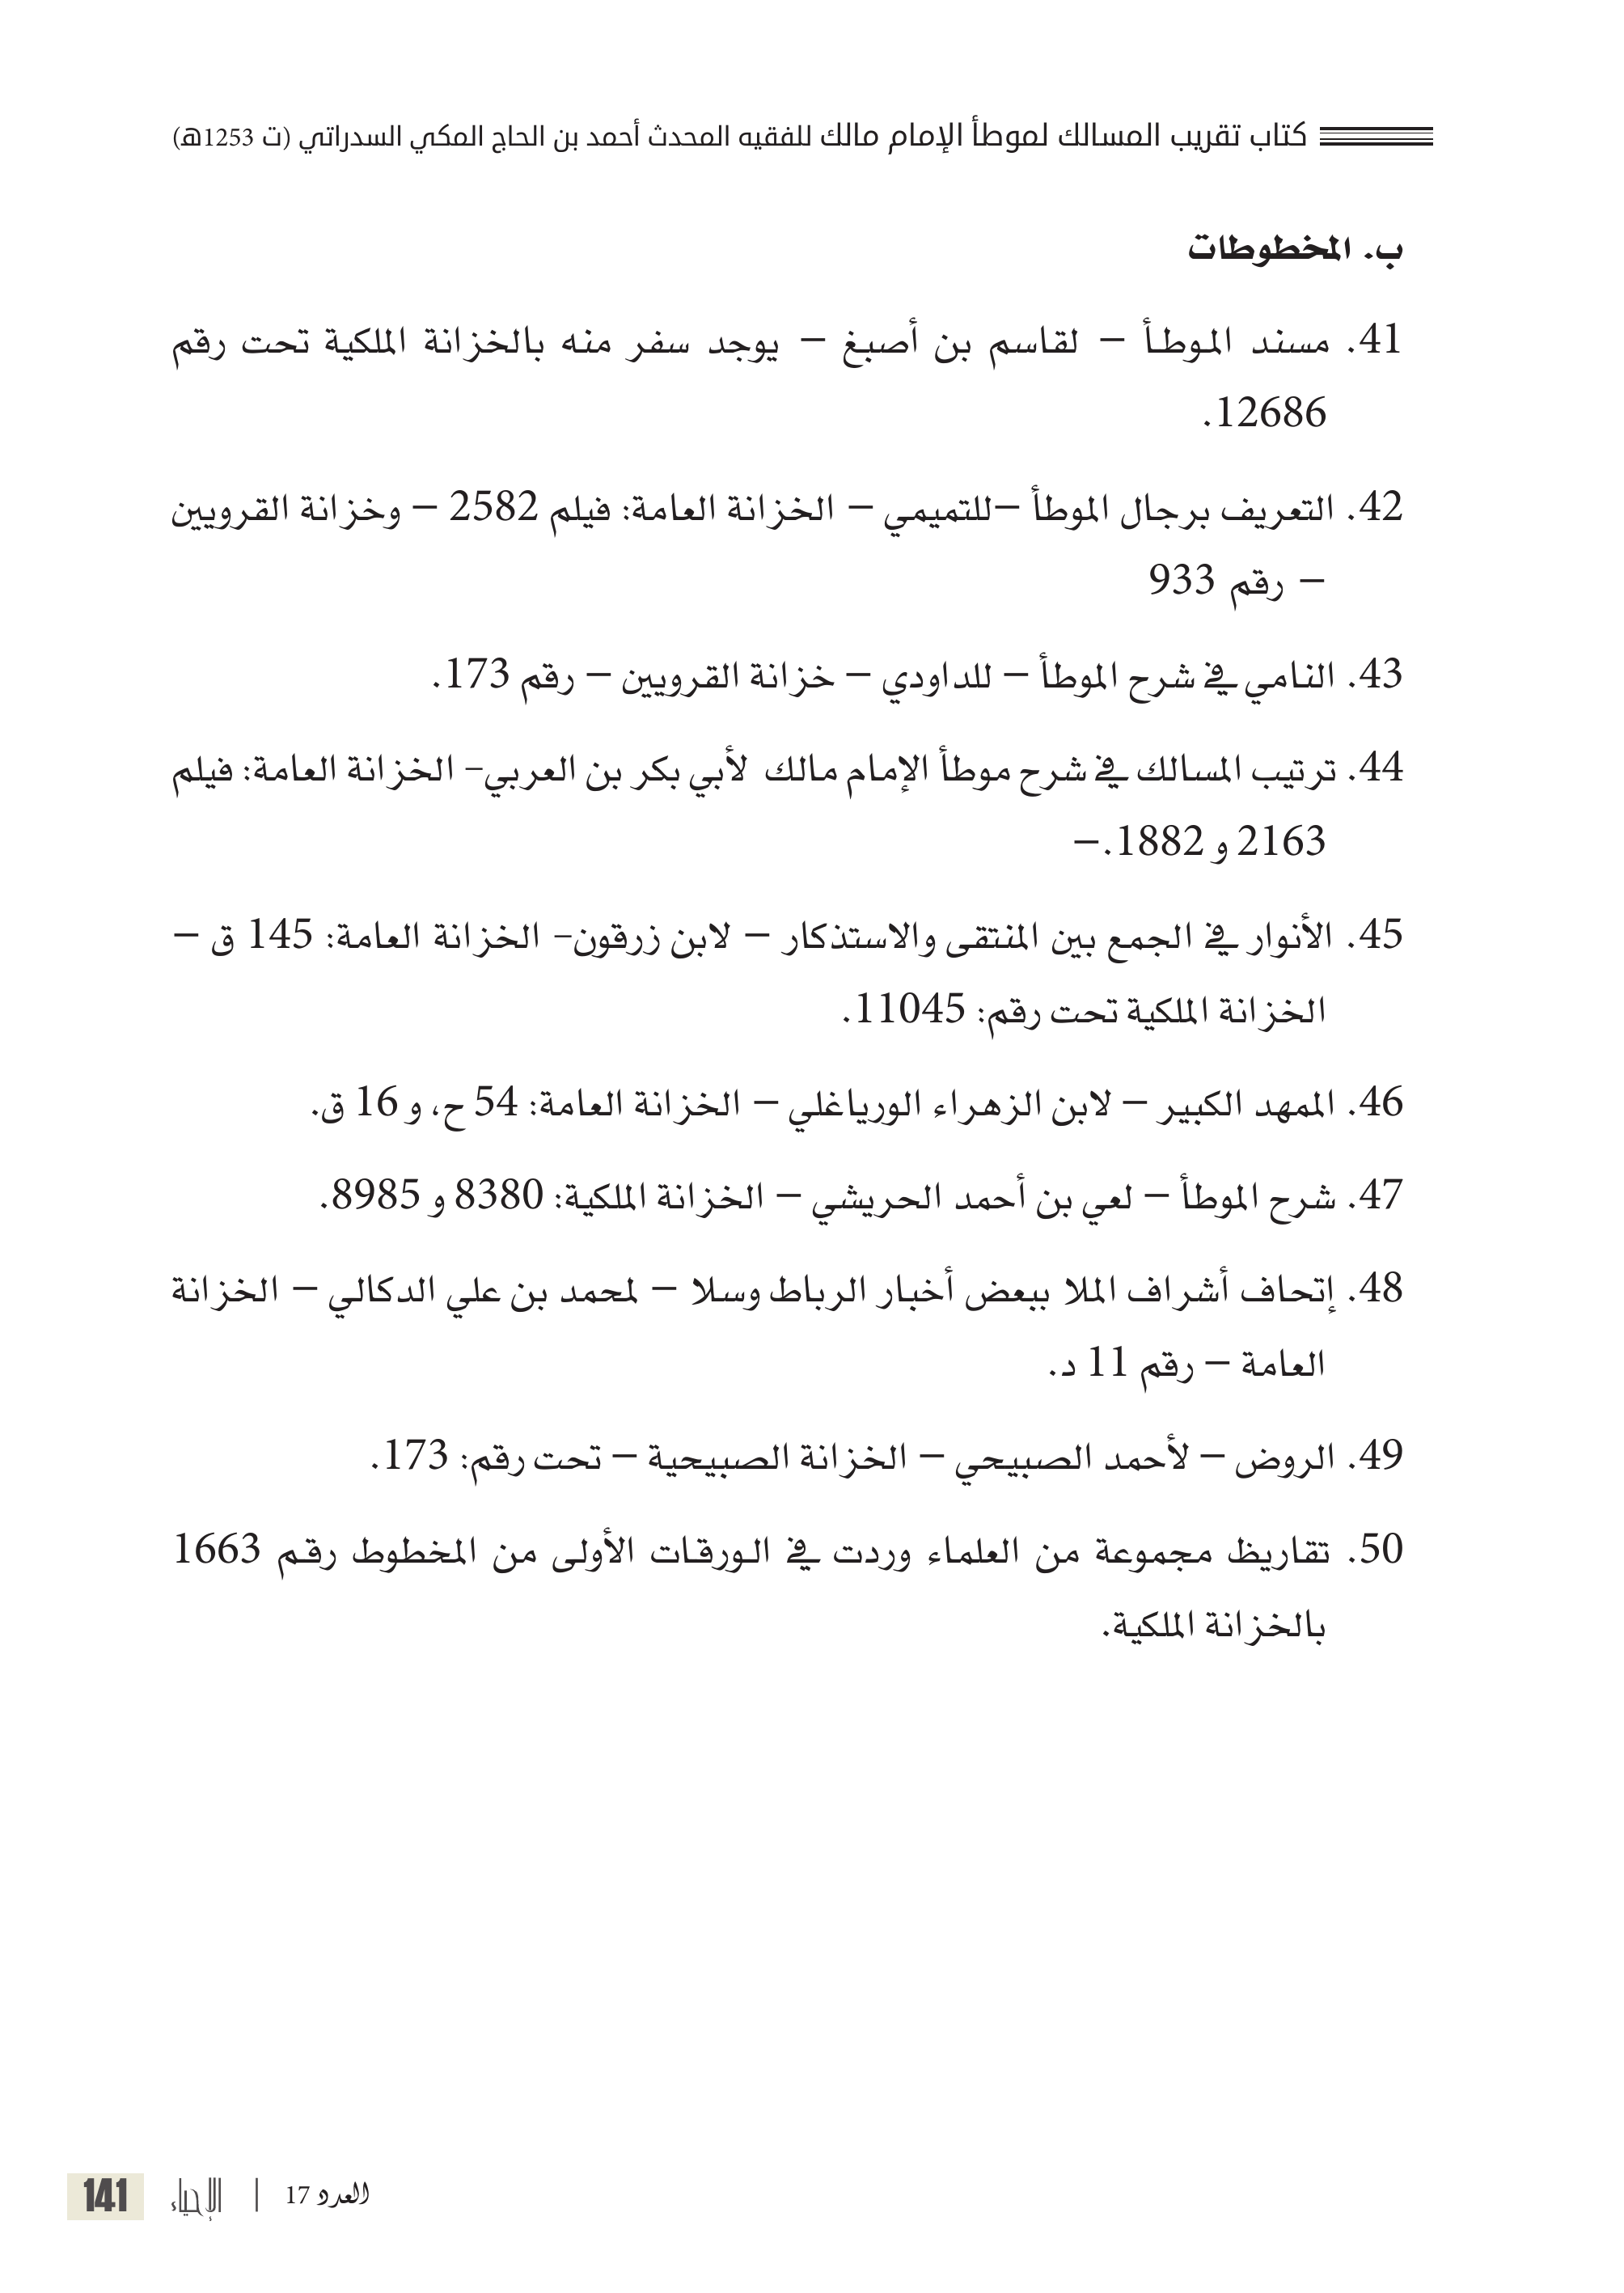 كتاب تقريب المسالك لموطأ الإمام مالك للفقيه المحدث أحمد بن الحاج المكي السدراتي (ت 1253ه)
ب. المخطوطات
41. مسند الموطأ – لقاسم بن أصبغ – يوجد سفر منه بالخزانة الملكية تحت رقم
12686.
42. التعريف برجال الموطأ –للتميمي – الخزانة العامة: فيلم 2582 – وخزانة القرويين
– رقم 933
43. النامي في شرح الموطأ – للداودي – خزانة القرويين – رقم 173.
44. ترتيب المسالك في شرح موطأ الإمام مالك لأبي بكر بن العربي– الخزانة العامة: فيلم
2163 و 1882.–
45. الأنوار في الجمع بين المنتقى والاستذكار – لابن زرقون– الخزانة العامة: 145 ق –
الخزانة الملكية تحت رقم: 11045.
46. الممهد الكبير – لابن الزهراء الورياغلي – الخزانة العامة: 54 ح، و 16 ق.
47. شرح الموطأ – لعي بن أحمد الحريشي – الخزانة الملكية: 8380 و 8985.
48. إتحاف أشراف الملا ببعض أخبار الرباط وسلا – لمحمد بن علي الدكالي – الخزانة
العامة – رقم 11 د.
49. الروض – لأحمد الصبيحي – الخزانة الصبيحية – تحت رقم: 173.
50. تقاريظ مجموعة من العلماء وردت في الورقات الأولى من المخطوط رقم 1663
بالخزانة الملكية.
العدد 17 | الإحياء 141